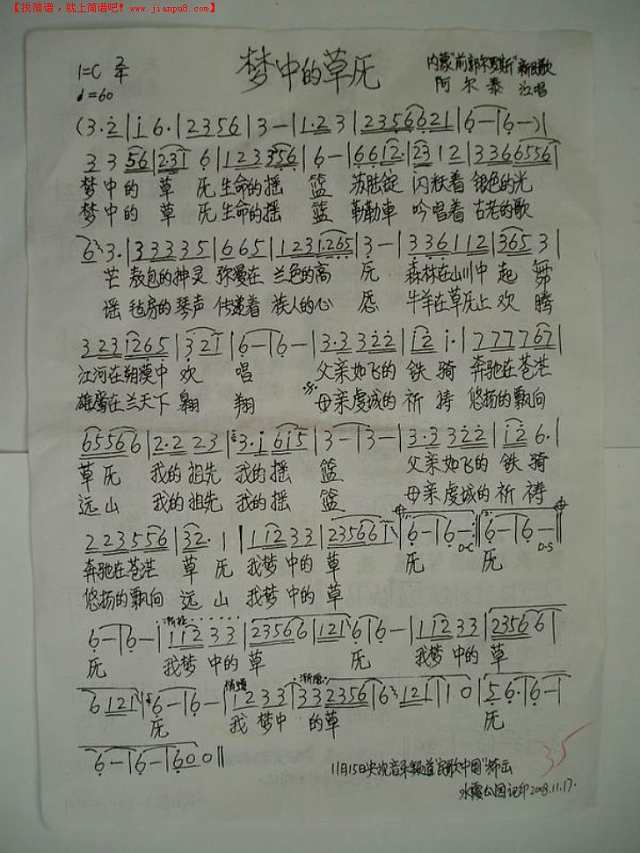 【找简谱，就上简谱吧！www.jianpu8.com】
梦中的草原
1=C 2/4
♩=60
内蒙"前郭尔罗斯"新民歌
阿尔泰 江唱
(3·2|i 6·|2356|3—|1·23|2356621|6—|6—)|
33 56|231 6|123356|6—|6612·|23 12|3366556|
梦中的 草 原 生命的摇 篮 苏陆锭 闪耀着 银色的光
梦中的 草 原 生命的摇 篮 勒勒車 吟唱着 古老的歌
6 3·|33335|665|1231·265|3—|336112|365 3|
芒 敖包的神灵 弥漫在 兰色的高 原 森林在山川中 起 舞
谣 毡房的琴声 传递着 族人的心 愿 牛羊在草原上 欢 腾
323i265|321|6—|6—|3·3322|i2 i·|777767|
江河在朔漠中 欢 唱 父亲如飞的 铁 骑 奔驰在苍茫
雄鹰在兰天下 翱 翔 母亲虔诚的 祈 祷 悠扬的飘向
65566|2·2 23|3·i 6i5|3—|3—|3·3322|i2 6·|
草 原 我的祖先 我的摇 篮 父亲如飞的 铁 骑
远 山 我的祖先 我的摇 篮 母亲虔诚的 祈 祷
223556|32·1|11233|235661|6—|6—|6—|6—||
D·C D·S
奔驰在苍茫 草 原 我梦中的 草 原 原
悠扬的飘向 远 山 我梦中的 草
6—|6—|11233|23566|121|6|6—|11233|23566|
原 我梦中的 草 原 我梦中的 草
6121|6—|6—|1233|332356|6121|10|5 6·|6—|
原 我梦中 的草 原
6—|6—|600||
35
11月15日央视音乐频道"民歌中国"播出
水霞公园记印2008.11.17.